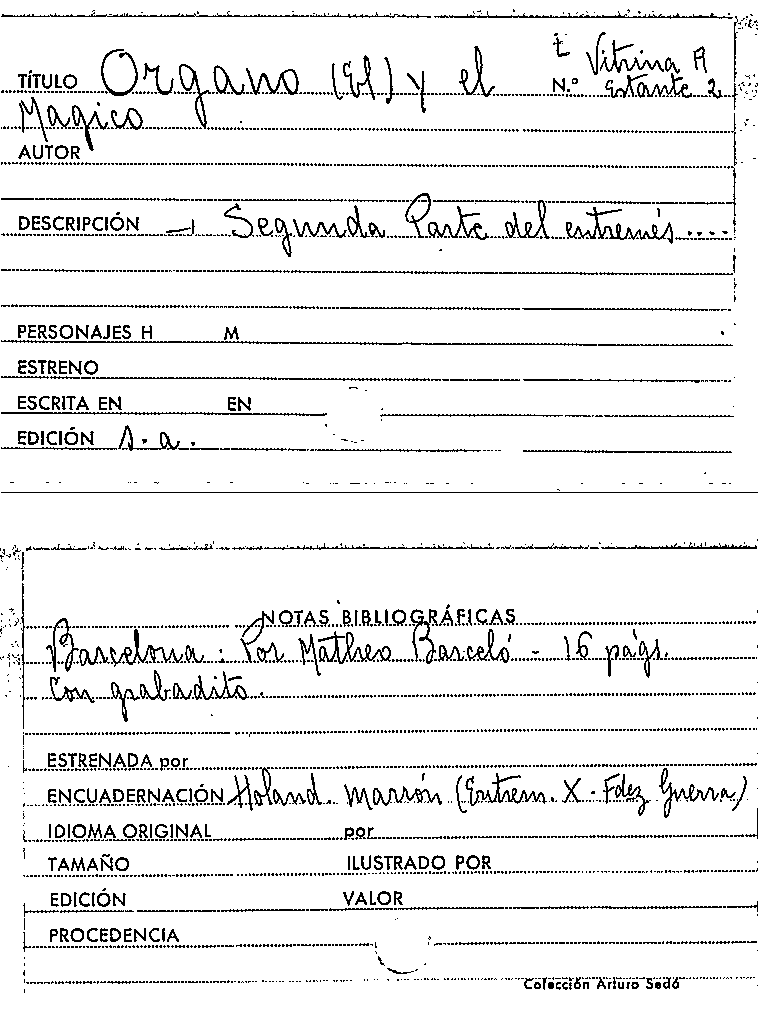 TÍTULO Organo (El) y el
t Vitrina A
N.º Estante 2
Magico
AUTOR
DESCRIPCIÓN — Segunda Parte del entremés....
PERSONAJES H M
ESTRENO
ESCRITA EN EN
EDICIÓN s.a.
NOTAS BIBLIOGRÁFICAS
Barcelona: Por Matheo Barceló - 16 págs.
Con grabadito.
ESTRENADA por
ENCUADERNACIÓN Holand. marrón (Entrem. X - Fdez Guerra)
IDIOMA ORIGINAL por
TAMAÑO ILUSTRADO POR
EDICIÓN VALOR
PROCEDENCIA
Colección Arturo Sedó